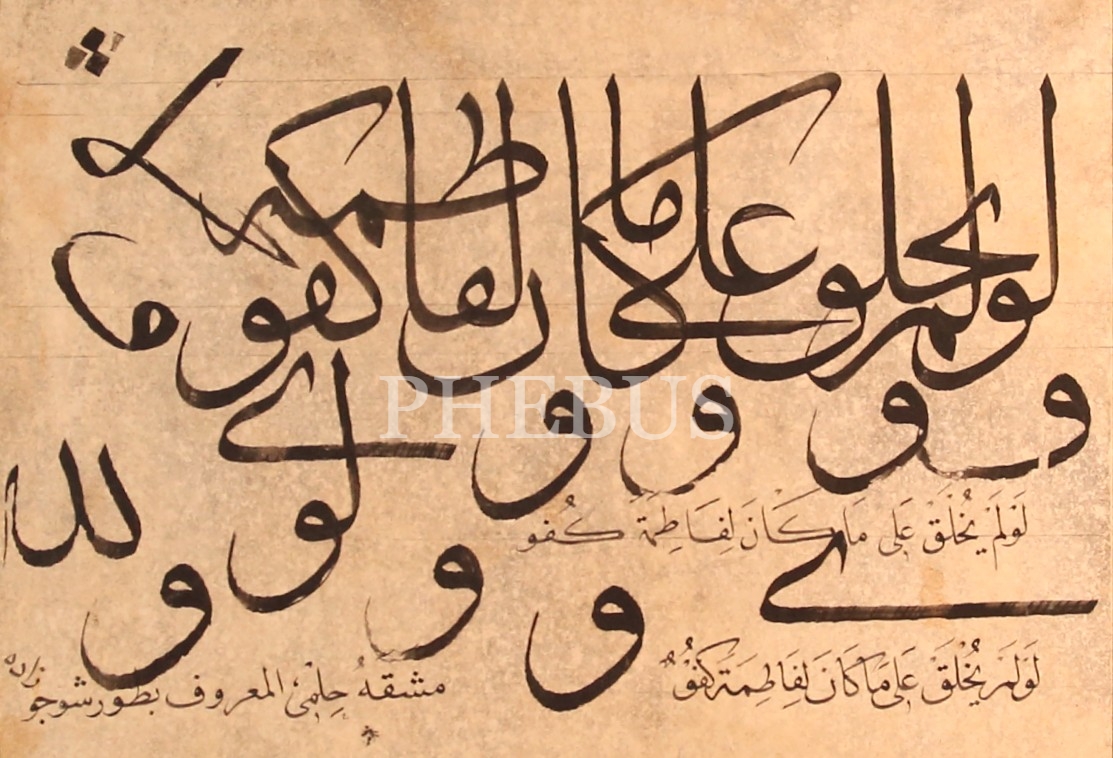 لو لم يخلق على ما كان لفاطمة كفو
ما
و و و و
PHEBUS
لو ے
لله
لَوْلَمْ يُخْلَقْ عَلى مَا كَانَ لِفَاطِمَةَ كُفو
ے
و و و
لَوْلَمْ يُخْلَقْ عَلى مَا كَانَ لِفَاطِمَةَ كُفُوٌ
مشقهُ حِلْمى المعروف بطورشوجو زاده